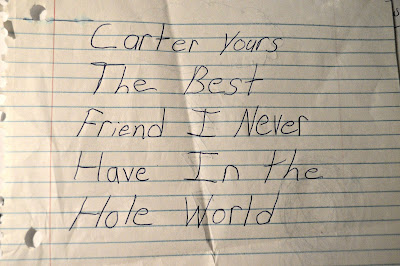 Carter Yours
The Best
Friend I Never
Have In the
Hole World